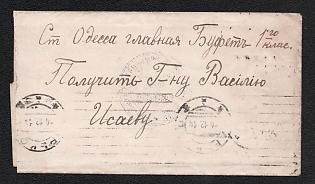 Ст Одесса главная Буфетъ 1го клас.
Получить Г-ну Василію
Исаеву